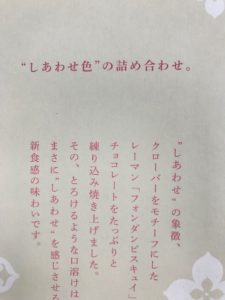 “しあわせ色”の詰め合わせ。
“しあわせ”の象徴、
クローバーをモチーフにした
レーマン「フォンダンビスキュイ」
チョコレートをたっぷりと
練り込み焼き上げました。
その、とろけるような口溶けは
まさに“しあわせ”を感じさせる
新食感の味わいです。